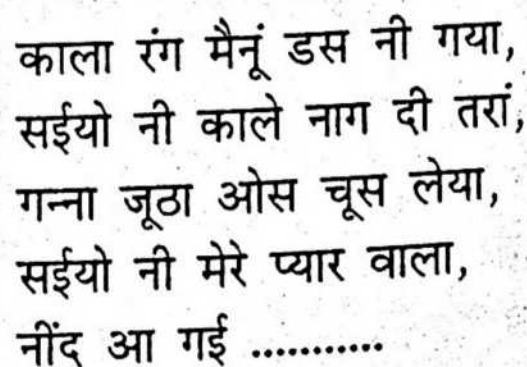 काला रंग मैनूं डस नी गया,
सईयो नी काले नाग दी तरां,
गन्ना जूठा ओस चूस लेया,
सईयो नी मेरे प्यार वाला,
नींद आ गई ...........